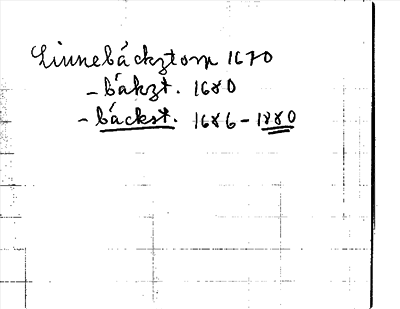 Linnebáckztorp 1670
- bákzt. 1680
- báckst. 1686 - 1880